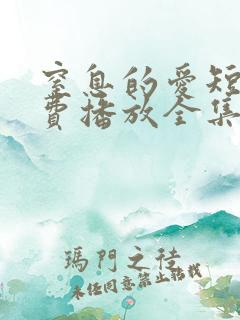 窒息的爱短
費播放全集
瑪門之徒
未经同意禁止轉載